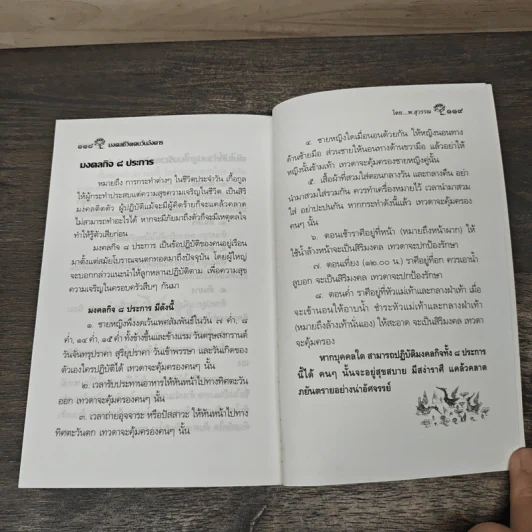 ๑๑๘ มงคลชีวิตคนวันอังคาร
มงคลกิจ ๘ ประการ
หมายถึง การกระทำต่างๆ ในชีวิตประจำวัน เกื้อกูล
ให้ผู้กระทำประสบแต่ความสุขความเจริญในชีวิต เป็นสิริ
มงคลติดตัว ผู้ปฏิบัติแม้จะมีผู้คิดร้ายก็จะแคล้วคลาด
ไม่สามารถทำอะไรได้ หากจะมีภัยมาถึงตัวก็จะมีเหตุดลใจ
ทำให้รู้ตัวเสียก่อน
มงคลกิจ ๘ ประการ เป็นข้อปฏิบัติของคนอยู่เรือน
มาตั้งแต่สมัยโบราณจนตกทอดมาถึงปัจจุบัน โดยผู้ใหญ่
จะบอกกล่าวแนะนำให้ลูกหลานปฏิบัติตาม เพื่อความสุข
ความเจริญในครอบครัวสืบๆ กันมา
มงคลกิจ ๘ ประการ มีดังนี้
๑. ชายหญิงพึงงดเว้นเพศสัมพันธ์ในวัน ๗ ค่ำ, ๘
ค่ำ, ๑๔ ค่ำ, ๑๕ ค่ำ ทั้งข้างขึ้นและข้างแรม วันตรุษสงกรานต์
วันจันทรุปราคา สุริยุปราคา วันเข้าพรรษา และวันเกิดของ
ตัวเองใครปฏิบัติได้ เทวดาจะคุ้มครองคนๆ นั้น
๒. เวลารับประทานอาหารให้หันหน้าไปทางทิศตะวัน
ออก เทวดาจะคุ้มครองคนๆ นั้น
๓. เวลาถ่ายอุจจาระ หรือปัสสาวะ ให้หันหน้าไปทาง
ทิศตะวันตก เทวดาจะคุ้มครองคนๆ นั้น
โดย...พ.สุวรรณ ๑๑๙
๔. ชายหญิงใดเมื่อนอนด้วยกัน ให้หญิงนอนทาง
ด้านซ้ายมือ ส่วนชายให้นอนทางด้านขวามือ แล้วอย่าให้
หญิงนั้นข้ามเท้า เทวดาจะคุ้มครองชายหญิงคู่นั้น
๕. เสื้อผ้าที่สวมใส่ตอนกลางวัน และกลางคืน อย่า
นำมาสวมใส่รวมกัน ควรทำเครื่องหมายไว้ เวลานำมาสวม
ใส่ อย่าปะปนกัน หากกระทำดังนี้แล้ว เทวดาจะคุ้มครอง
คนๆ นั้น
๖. ตอนเช้าราศีอยู่ที่หน้า (หมายถึงหน้าผาก) ให้
ใช้น้ำล้างหน้าจะเป็นสิริมงคล เทวดาจะปกป้องรักษา
๗. ตอนเที่ยง (๑๒.๐๐ น.) ราศีอยู่ที่อก ควรเอาน้ำ
ลูบอก จะเป็นสิริมงคล เทวดาจะปกป้องรักษา
๘. ตอนค่ำ ราศีอยู่ที่หัวแม่เท้าและกลางฝ่าเท้า เมื่อ
จะเข้านอนให้อาบน้ำ ชำระหัวแม่เท้าและกลางฝ่าเท้า
(หมายถึงล้างเท้านั่นเอง) ให้สะอาด จะเป็นสิริมงคล เทวดา
จะคุ้มครอง
หากบุคคลใด สามารถปฏิบัติมงคลกิจทั้ง ๘ ประการ
นี้ได้ คนๆ นั้นจะอยู่สุขสบาย มีสง่าราศี แคล้วคลาด
ภยันตรายอย่างน่าอัศจรรย์